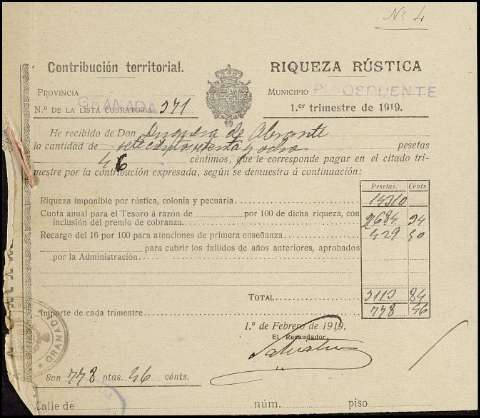 Nº 4
Contribución territorial. RIQUEZA RÚSTICA
PROVINCIA GRANADA MUNICIPIO PINOS PUENTE
N.º DE LA LISTA COBRATORIA 371 1.er trimestre de 1919.
He recibido de Don Duquesa de Abrante
la cantidad de setecientos setenta y ocho pesetas
46 céntimos, que le corresponde pagar en el citado tri-
mestre por la contribución expresada, según se demuestra á continuación:
Pesetas. Cents
Riqueza imponible por rústica, colonia y pecuaria.
Cuota anual para el Tesoro á razón de por 100 de dicha riqueza, con
inclusión del premio de cobranza. 2684 34
Recargo del 16 por 100 para atenciones de primera enseñanza. 429 50
para cubrir los fallidos de años anteriores, aprobados
por la Administración.
TOTAL 3113 84
Importe de cada trimestre 778 46
1.º de Febrero de 1919.
El Recaudador,
Son 778 ptas. 46 cénts.
Calle de núm. piso